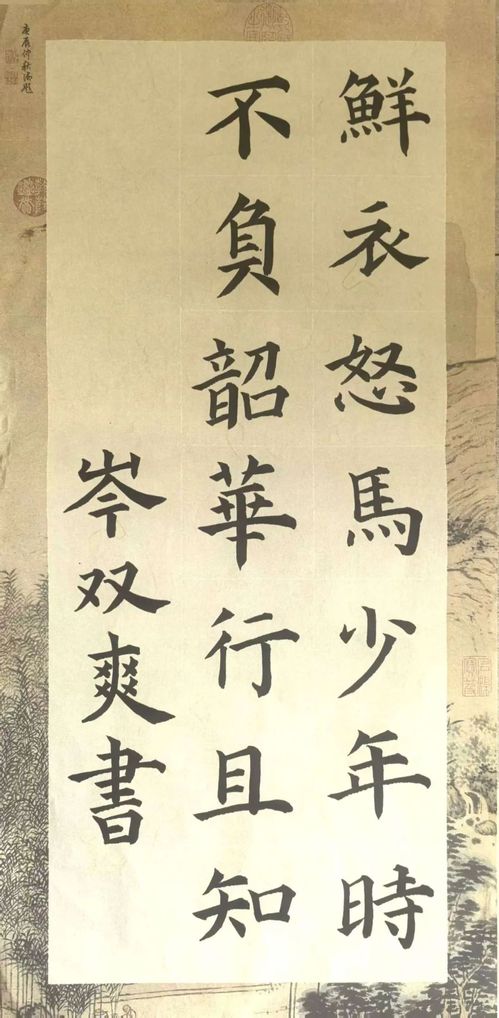 鮮衣怒馬少年時
不負韶華行且知
岑双爽書